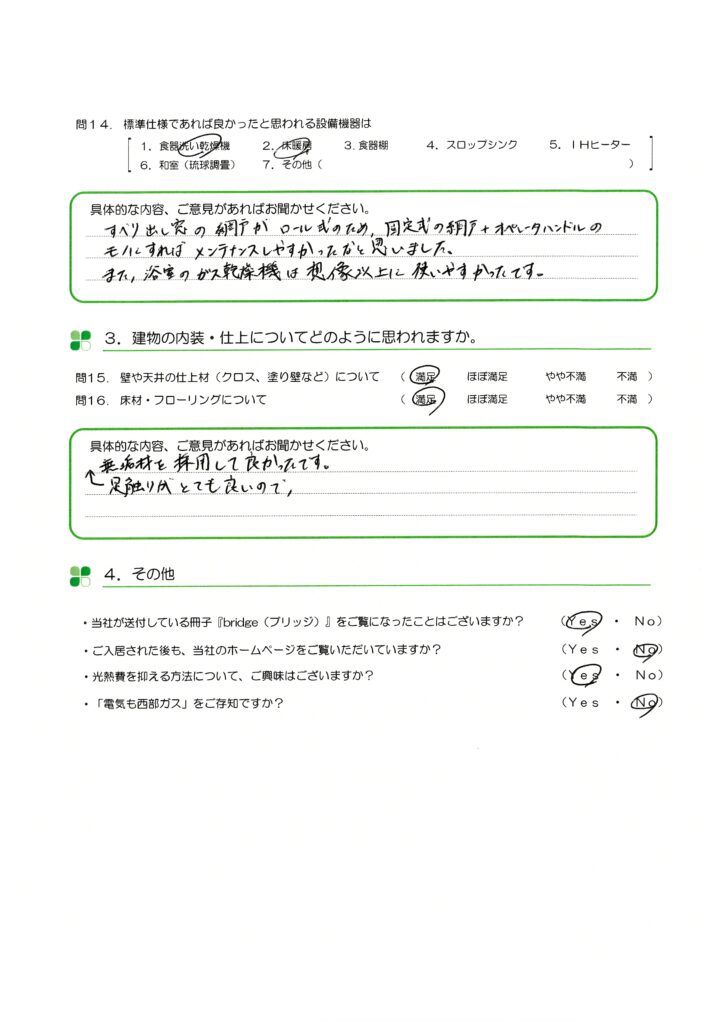 問１４．標準仕様であれば良かったと思われる設備機器は
１．食器洗い乾燥機　２．床暖房　３.食器棚　４．スロップシンク　５．ＩＨヒーター
６．和室（琉球調畳）　７．その他（　）
具体的な内容、ご意見があればお聞かせください。
すべり出し窓の網戸がロール式のため，固定式の網戸+オペレータハンドルの
モノにすればメンテナンスしやすかったなと思いました。
また，浴室のガス乾燥機は想像以上に使いやすかったです。
３．建物の内装・仕上についてどのように思われますか。
問１５．壁や天井の仕上材（クロス、塗り壁など）について　（　満足　ほぼ満足　やや不満　不満　）
問１６．床材・フローリングについて　（　満足　ほぼ満足　やや不満　不満　）
具体的な内容、ご意見があればお聞かせください。
無垢材を採用して良かったです。
足触りがとても良いので，
４．その他
・当社が送付している冊子『bridge（ブリッジ）』をご覧になったことはございますか？　（Ｙｅｓ　・　Ｎｏ）
・ご入居された後も、当社のホームページをご覧いただいていますか？　（Ｙｅｓ　・　Ｎｏ）
・光熱費を抑える方法について、ご興味はございますか？　（Ｙｅｓ　・　Ｎｏ）
・「電気も西部ガス」をご存知ですか？　（Ｙｅｓ　・　Ｎｏ）